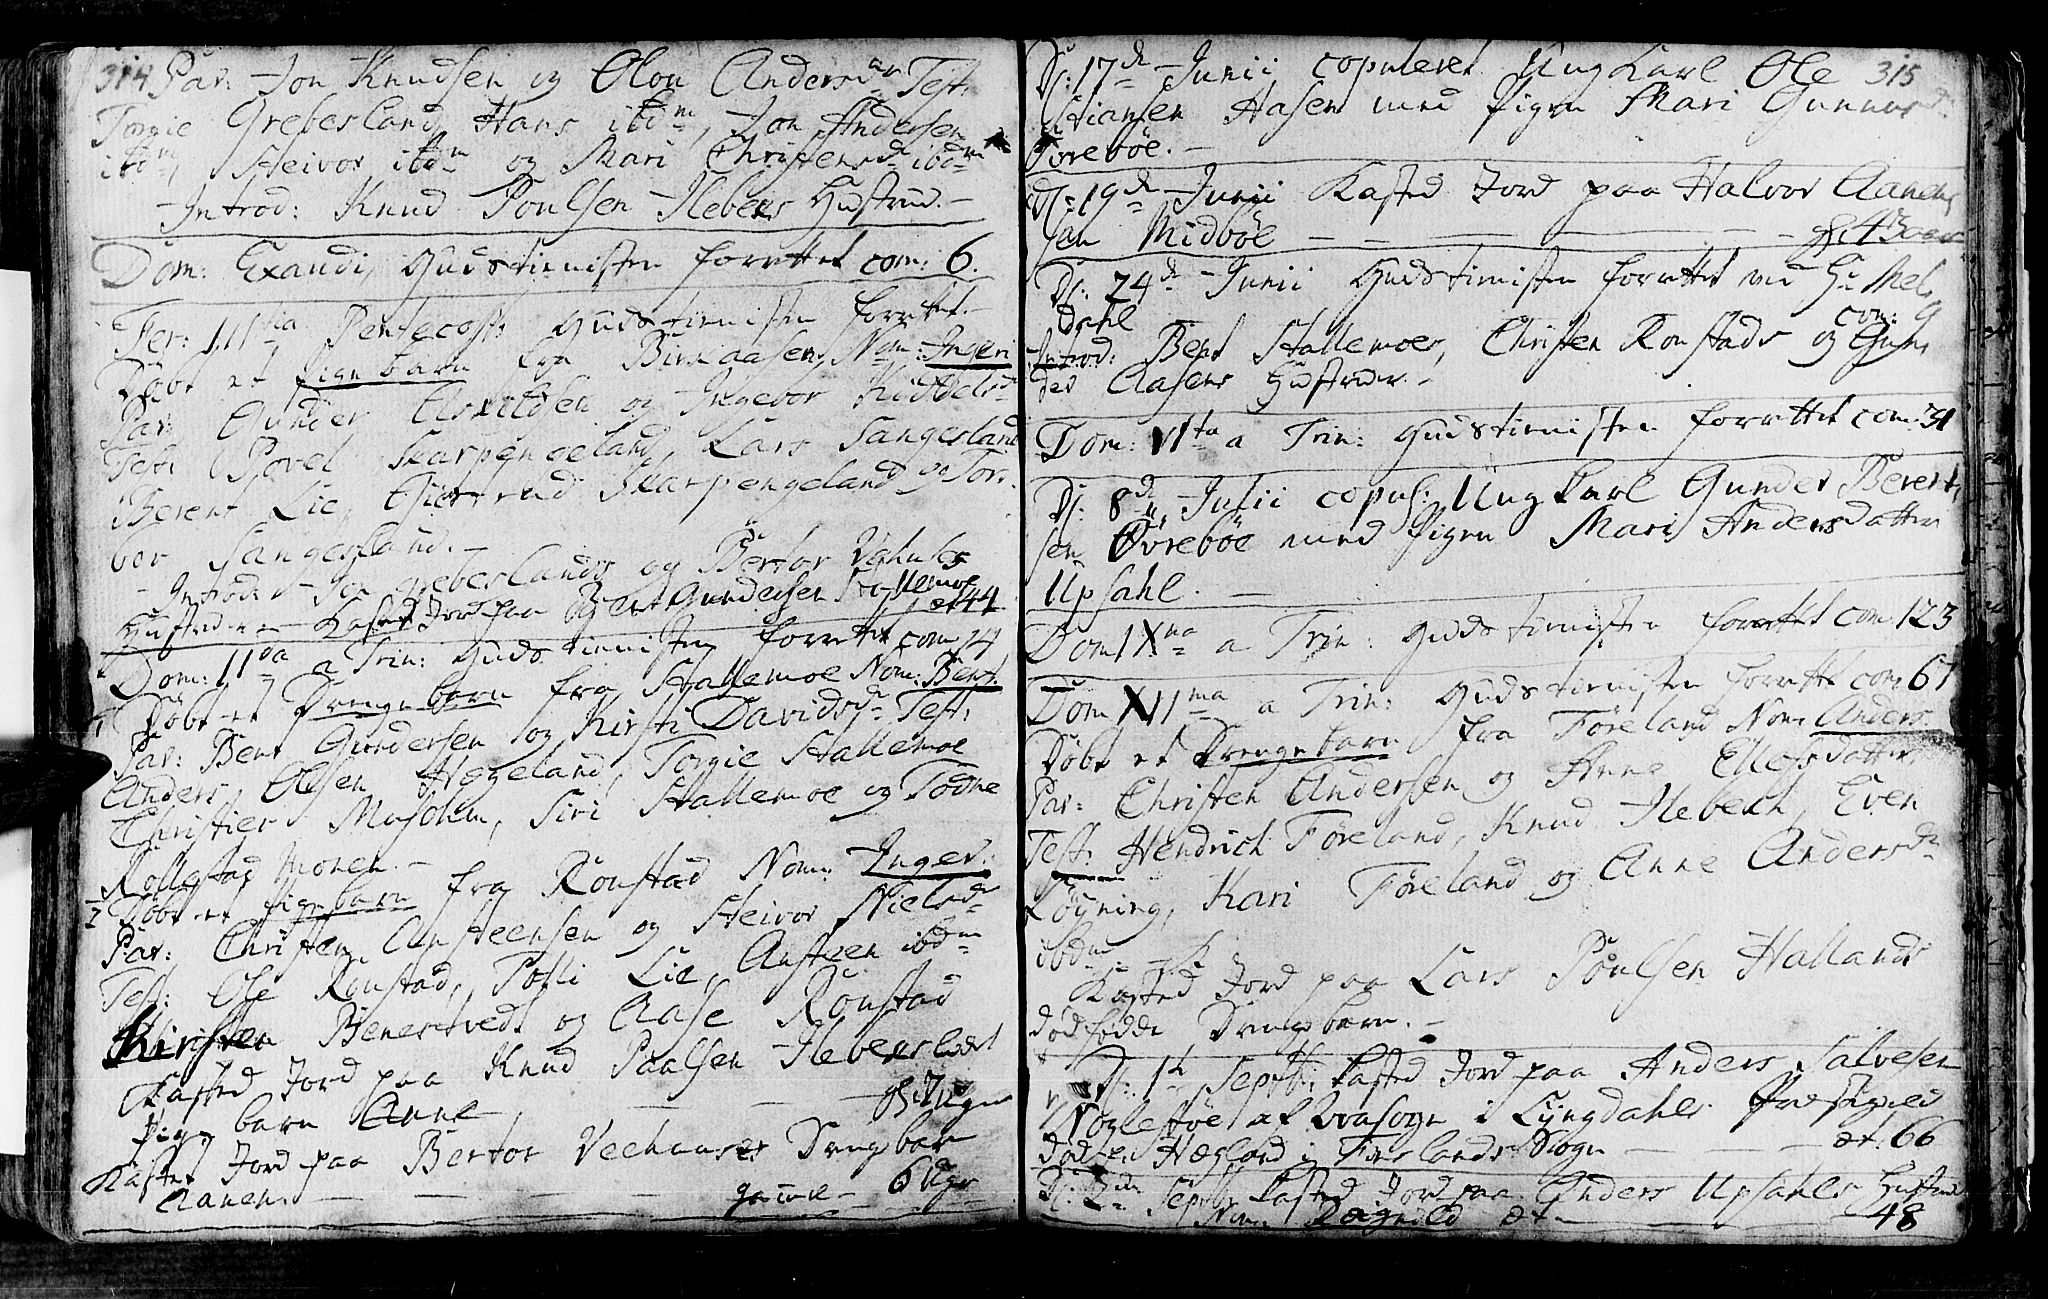 314 Par: Jon Knudsen og Olou Andersdn Test:
Torgie Grebesland, Hans ibdm, Jon Andersen
ibdm, Steivor ibdm og Mari Christensdr ibdm
Introd: Knud Poulsen Ilebeks Hustrue.
Dom: Exaudi, Gudstienisten forrettet com: 6.
Fer: IIItia Pentecost: Gudstienisten forrettet.
Døbt et Pigebarn fra Birkaasen, Nom: Ingeri
Par: Gunder Eskildsen og Ingebor Kiddelsdr
Test: Povel Skarpengeland, Lars Sangesland
Berent Lie, Giertrud Skarpengeland og Tor-
bor Sangesland.
Introd: Jon Grebeslands og Bertor
Hustruer Kasted Jord paa Bent Gundersen Stallemoe
æt 44
Dom: IIda a Trin: Gudstienisten forrettet com 14
1 Døbt et Drengebarn fra Stallemoe Nom: Bent.
Par: Bent Gundersen og Kirsti Davidsdr Test:
Anders Olsen Hegeland, Torgie Stallemoe
Christier Muschom, Siri Stallemoe og Todne
Rollestad monen.
2 Døbt et Pigebarn fra Ronstad Nom: Inger.
Par: Christen Ansteensen og Steivor Nielsdr
Test: Ole Ronstad, Tolli Lie, Ansteen ibdm
Kirsten Benestvedt og Aase Ronstad
Kasted Jord paa Knud Paalsen Ilebeks
Pigebarn Anne gl: 7 Uger
Kasted Jord paa Bertor Veehuuses Drengebarn
Aanen. gamel 6 Uger
315
D: 17de Junii copuleret Ungkarl Ole
Stiansen Hasen med Pigen Mari Gunnarsdr
Øvrebøe.
D: 19de Junii Kasted Jord paa Halvor Aanen-
sen Midbøe gl: 43 aar
D: 24de Junii Gudstienisten forrettet ved Hr Mel-
dahl com: 9
Introd: Bent Stallemoes, Christen Ronstads og Gun-
der Aasens Hustruer.
Dom: VIta a Trin: Gudstienisten forrettet com: 31
D: 8de Julii copul: Ungkarl Gunder Berent-
sen Øvrebøe med Pigen Mari Andersdatter
Upsahl.
Dom IXna a Trin: Gudstienisten forrettet com: 123
Dom XIIma a Trin: Gudstienisten forrettet com: 67
Døbt et Drengebarn fra Føreland Nom: Anders.
Par: Christen Andersen og Anne Ellefsdatter
Test: Hendrich Føreland, Knud Ilebech, Even
Løyning, Kari Føreland og Anne Andersdr
ibdm
Kasted Jord paa Lars Poulsen Hallands
dødfødde Drengebarn.
D: 1te Septb: Kasted Jord paa Anders Salvesen
Nøglestøe af Qvaasogn i Lyngdahls Præstegield
død en Hægland i Finslands Sogn æt: 66
D: 2den Septb: Kasted Jord paa Anders Upsahls Hustrue
Nom: Ragnild æt 48